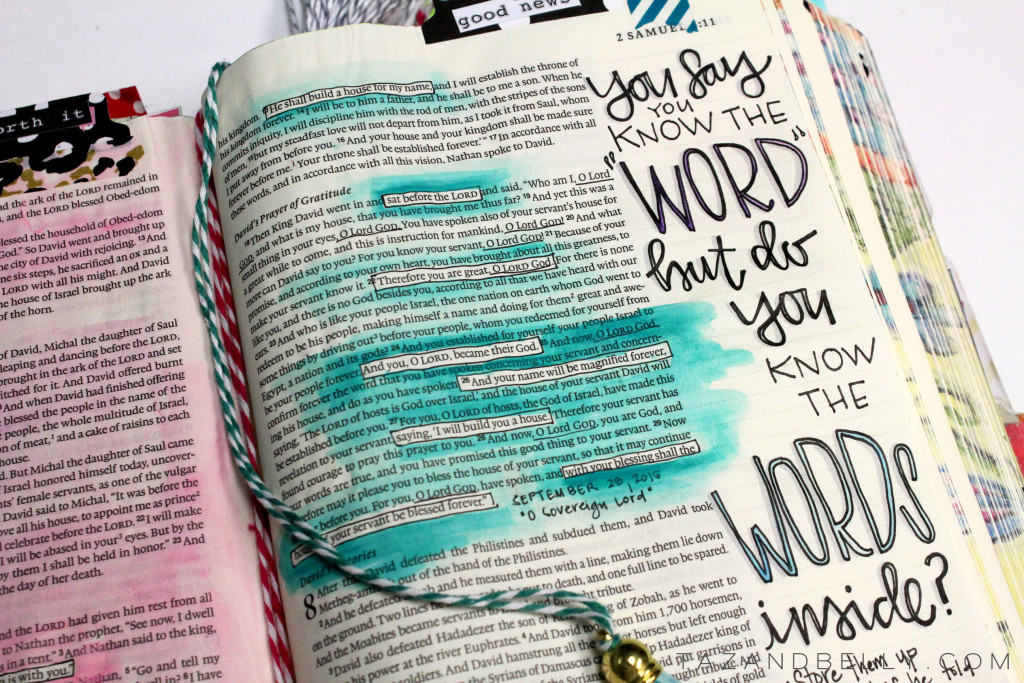 good news
orth it
and the ark of the LORD remained in
s, and the LORD blessed Obed-edom
blessed the household of Obed-edom
God." So David went and brought up
the city of David with rejoicing. 13 And
ne six steps, he sacrificed an ox and
LORD with all his might. And David
the house of Israel brought up the ark
of the horn.
of David, Michal the daughter of Saul
leaping and dancing before the LORD,
brought in the ark of the LORD and set
pitched for it. And David offered burnt
And when David had finished offering
blessed the people in the name of the
people, the whole multitude of Israel,
on of meat, and a cake of raisins to each
house.
d. But Michal the daughter of Saul came
Israel honored himself today, uncover-
nts' female servants, as one of the vulgar
David said to Michal, "It was before the
ove all his house, to appoint me as prince
celebrate before the LORD. 22 I will make
will be abased in your eyes. But by the
by them I shall be held in honor." 23 And
the day of her death.
and the LORD had given him rest from all
to Nathan the prophet, "See now, I dwell
in a tent." 3 And Nathan said to the king,
is with you."
5 "Go and tell my
2 SAMUEL :11
He shall build a house for my name, and I will establish the throne of
his kingdom forever. 14 I will be to him a father, and he shall be to me a son. When he
commits iniquity, I will discipline him with the rod of men, with the stripes of the sons
of men, 15 but my steadfast love will not depart from him, as I took it from Saul, whom
I put away from before you. 16 And your house and your kingdom shall be made sure
forever before me. Your throne shall be established forever.'" 17 In accordance with all
these words, and in accordance with all this vision, Nathan spoke to David.
David's Prayer of Gratitude
18 Then King David went in and sat before the LORD and said, "Who am I, O Lord
GOD, and what is my house, that you have brought me thus far? 19 And yet this was a
small thing in your eyes, O Lord GOD. You have spoken also of your servant's house for
a great while to come, and this is instruction for mankind, O Lord GOD! 20 And what
more can David say to you? For you know your servant, O Lord GOD! 21 Because of your
promise, and according to your own heart, you have brought about all this greatness, to
make your servant know it. 22 Therefore you are great, O LORD God. For there is none
like you, and there is no God besides you, according to all that we have heard with our
ears. 23 And who is like your people Israel, the one nation on earth whom God went to
redeem to be his people, making himself a name and doing for them great and awe-
some things by driving out before your people, whom you redeemed for yourself from
Egypt, a nation and its gods? 24 And you established for yourself your people Israel to
be your people forever. And you, O LORD, became their God. 25 And now, O LORD God,
confirm forever the word that you have spoken concerning your servant and concern-
ing his house, and do as you have spoken. 26 And your name will be magnified forever,
saying, 'The LORD of hosts is God over Israel,' and the house of your servant David will
be established before you. 27 For you, O LORD of hosts, the God of Israel, have made this
revelation to your servant, saying, 'I will build you a house.' Therefore your servant has
found courage to pray this prayer to you. 28 And now, O Lord GOD, you are God, and
your words are true, and you have promised this good thing to your servant. 29 Now
therefore may it please you to bless the house of your servant, so that it may continue
forever before you. For you, O Lord GOD, have spoken, and with your blessing shall the
house of your servant be blessed forever."
SEPTEMBER 28, 2016
"O Sovereign Lord"
David's Victories
8 After David defeated the Philistines and subdued them, and David took
Metheg-ammah out of the hand of the Philistines.
2 And he defeated and he measured them with a line, making them lie down
on the ground. Two lines he to be put to death, and one full line to be spared.
And the Moabites became servants to David and brought tribute.
3 David also defeated Hadadezer the son of of Zobah, as he went to
his power at the river Euphrates. 4 And David took from him 1,700 horsemen,
And David hamstrung all the horses but left enough
the Syrians of Damascus Hadadezer king of
of the Syrians put garrisons in
you say
YOU
KNOW THE
"WORD"
but do
you
KNOW
THE
WORDS
inside?
store them up
told
AZANDBELLY.COM